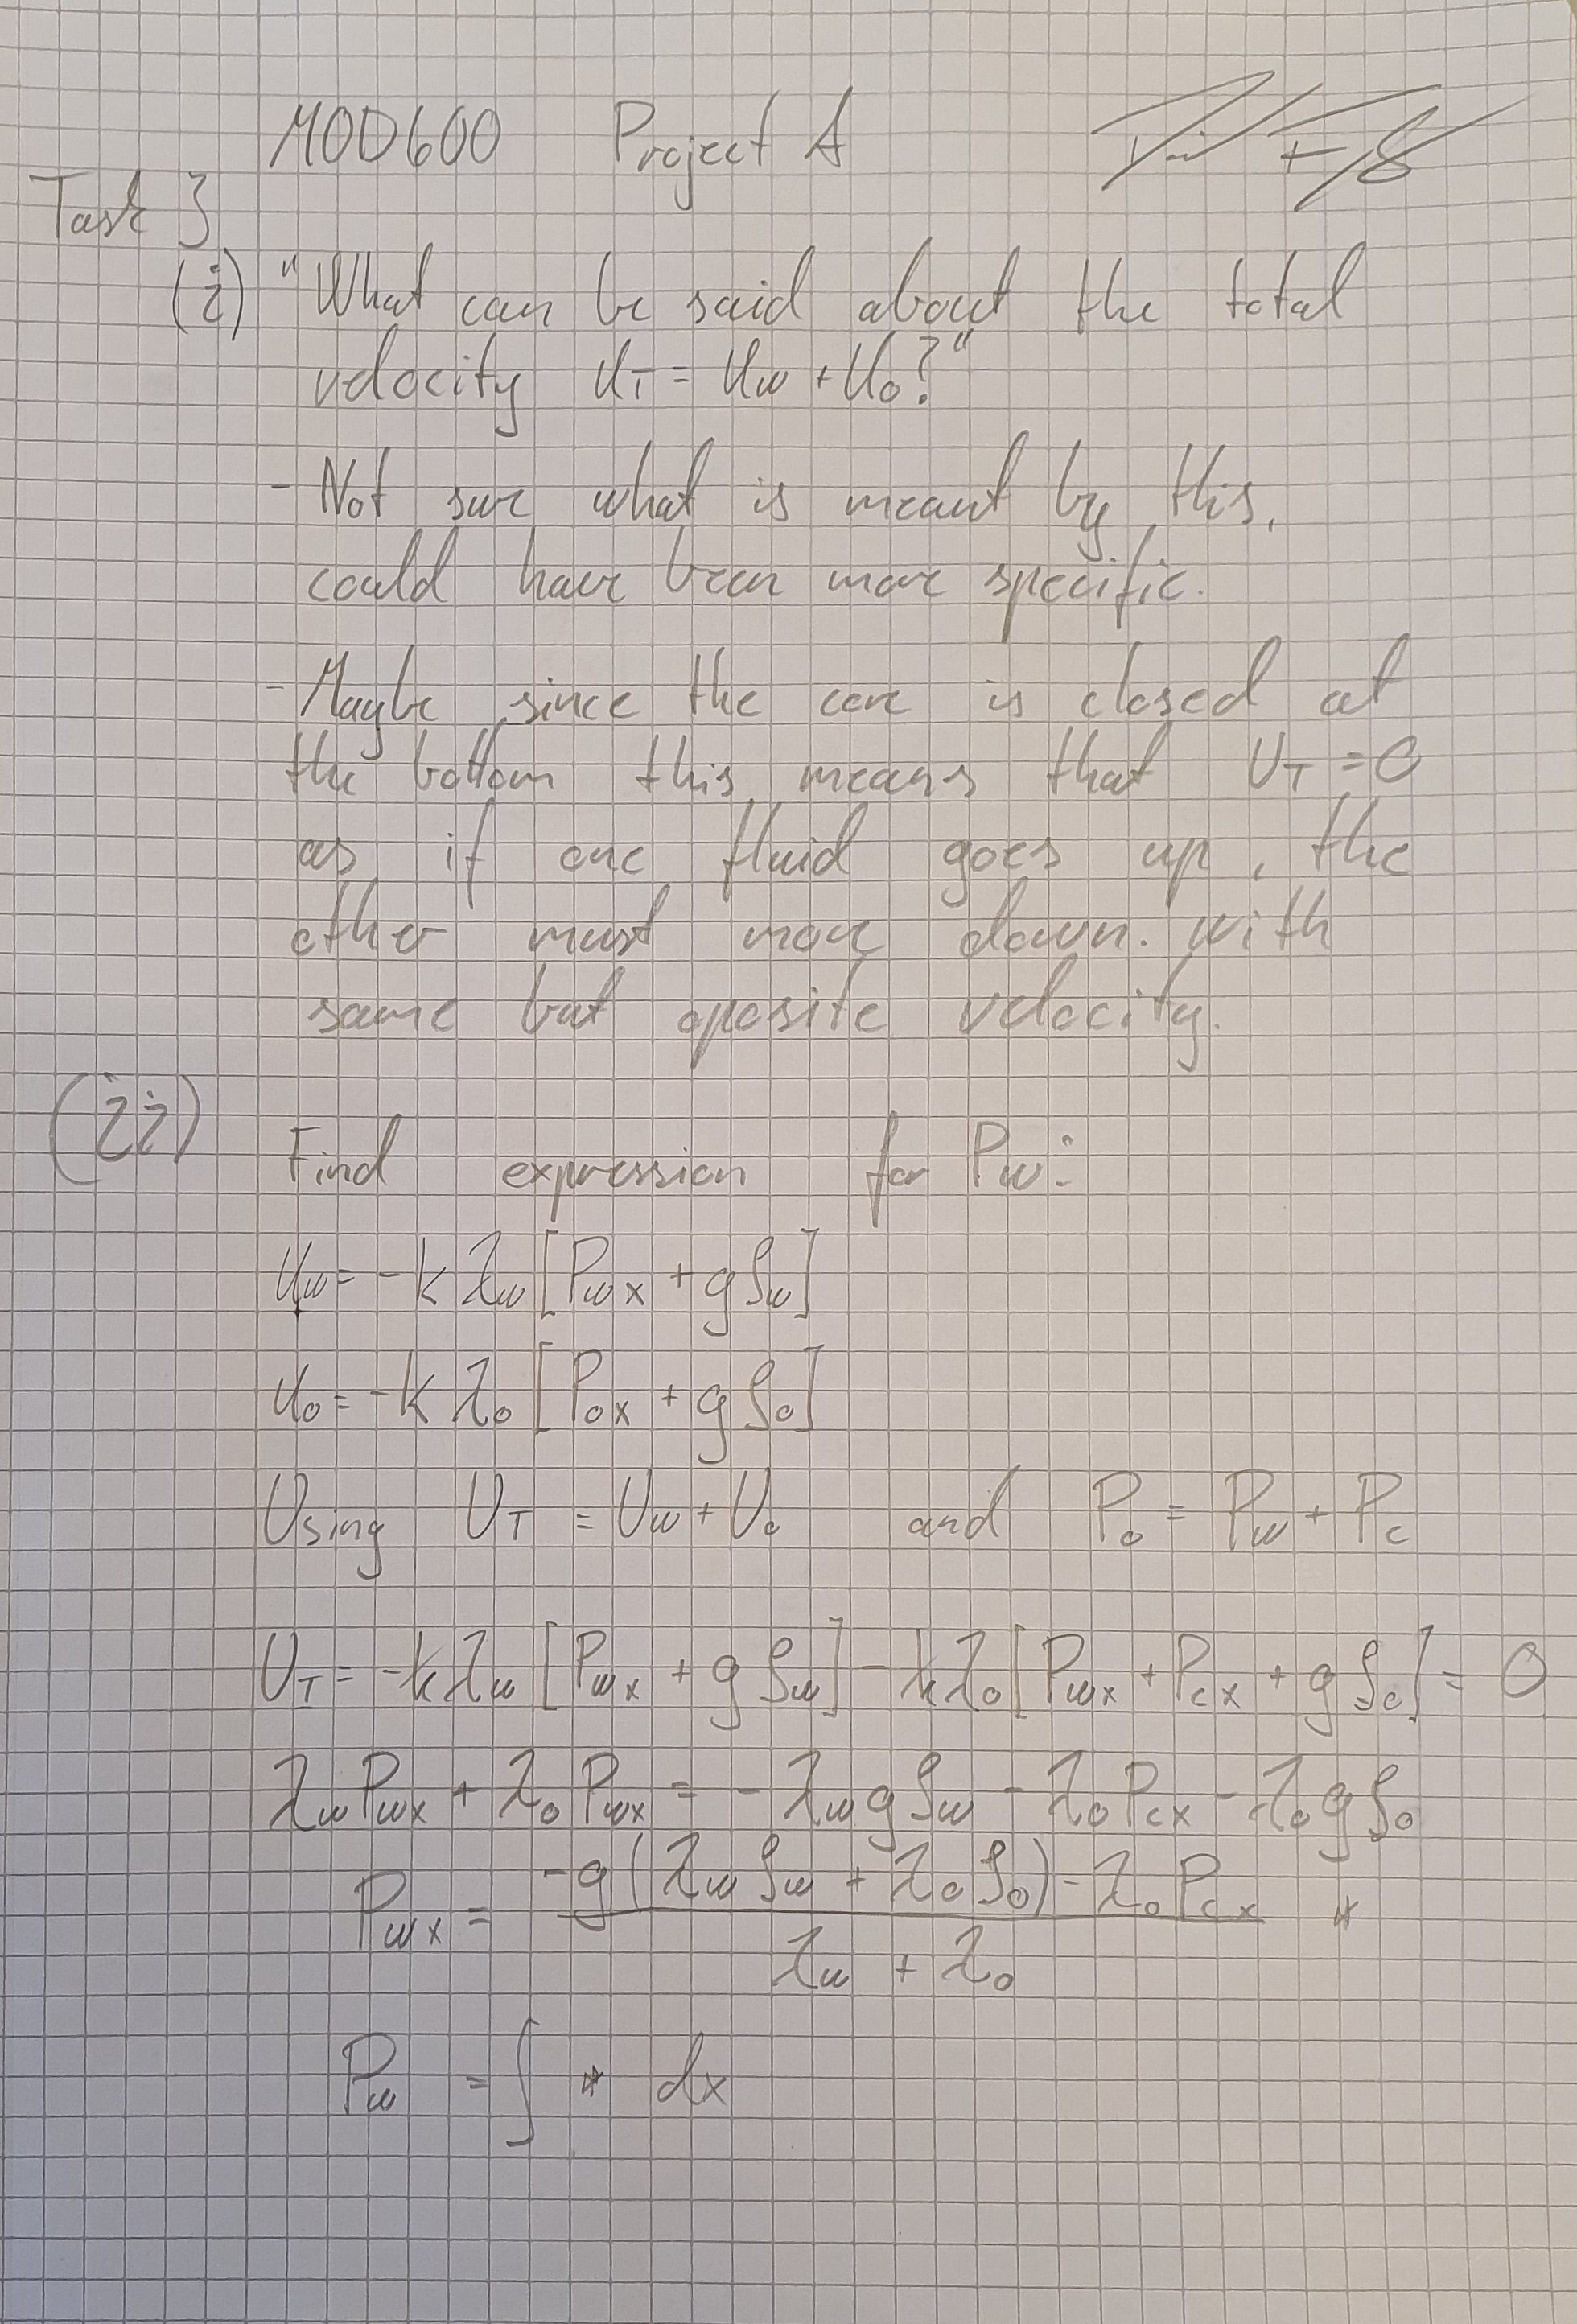 MOD600 Project A
Task 3
(i) "What can be said about the total
velocity u_T = u_w + u_o?"
- Not sure what is meant by this,
could have been more specific.
- Maybe since the core is closed at
the bottom this means that U_T = 0
as if one fluid goes up, the
other must move down. with
same but oposite velocity.
(ii) Find expression for P_w:
u_w = -k λ_w [P_wx + gρ_w]
u_o = -k λ_o [P_ox + gρ_o]
Using U_T = U_w + U_o and P_o = P_w + P_c
U_T = -kλ_w [P_wx + gρ_w] - kλ_o [P_wx + P_cx + gρ_o] = 0
λ_w P_wx + λ_o P_wx = -λ_w gρ_w - λ_o P_cx - λ_o gρ_o
P_wx = (-g(λ_w ρ_w + λ_o ρ_o) - λ_o P_cx) / (λ_w + λ_o) *
P_w = ∫ * dx